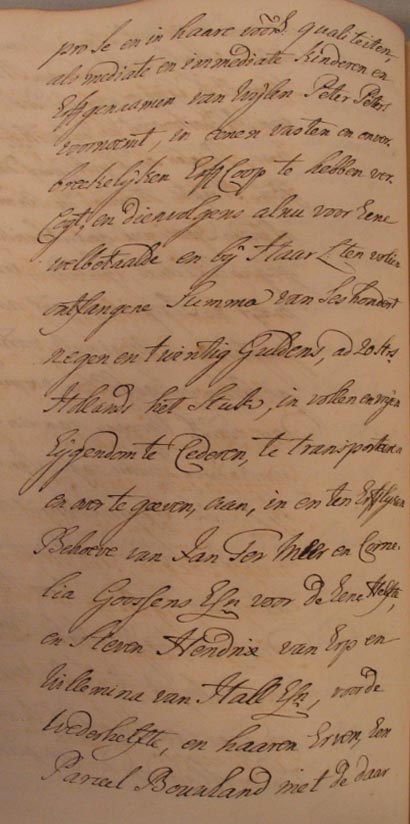 pro se en in haare voors. qualiteiten,
als mediate en immediate kinderen en
Erffgenaamen van wijlen Peter Peters
voornoemt, in eenen vasten en onver,
breekelijken Erff Coop te hebben ver,
Cogt, en dienvolgens alnu voor Eene
welbetaalde en bij Haar Lten volkn
ontfangene Summa van Ses hondert
negen en twentig Guldens, ad 20 Strs.
Hollands het Stuk, in vollen en vrijen
Eijgendom te Cederen, te transporteeren
en over te geeven, aan, in en ten Erfflijken
Behoeve van Jan Ter Meer en Corne-
lia Goossens Eln voor de Eene Helfte,
en Steven Hendrix van Erp en
Willemina van Hall Eln, voor de
Wederhelfte, en haaren Erven, Een
Parceel Bouwland met de daar